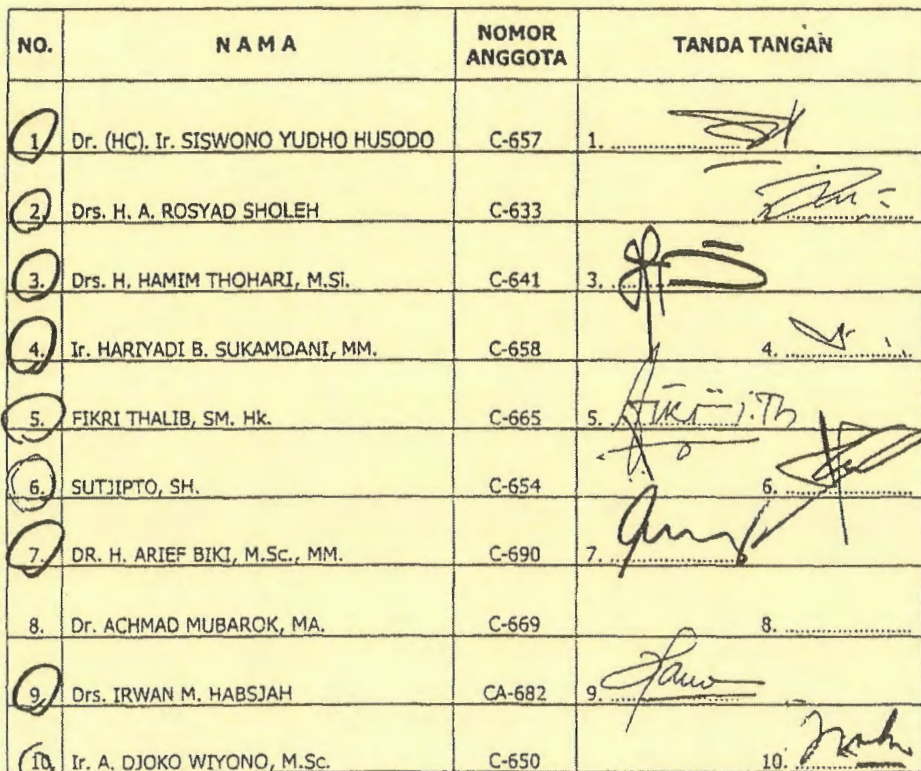 NO. NAMA NOMOR ANGGOTA TANDA TANGAN
1. Dr. (HC). Ir. SISWONO YUDHO HUSODO C-657 1. ....................
2. Drs. H. A. ROSYAD SHOLEH C-633 2. ....................
3. Drs. H. HAMIM THOHARI, M.Si. C-641 3. ....................
4. Ir. HARIYADI B. SUKAMDANI, MM. C-658 4. ....................
5. FIKRI THALIB, SM. Hk. C-665 5. ....................
6. SUTJIPTO, SH. C-654 6. ....................
7. DR. H. ARIEF BIKI, M.Sc., MM. C-690 7. ....................
8. Dr. ACHMAD MUBAROK, MA. C-669 8. ....................
9. Drs. IRWAN M. HABSJAH CA-682 9. ....................
10. Ir. A. DJOKO WIYONO, M.Sc. C-650 10. ....................